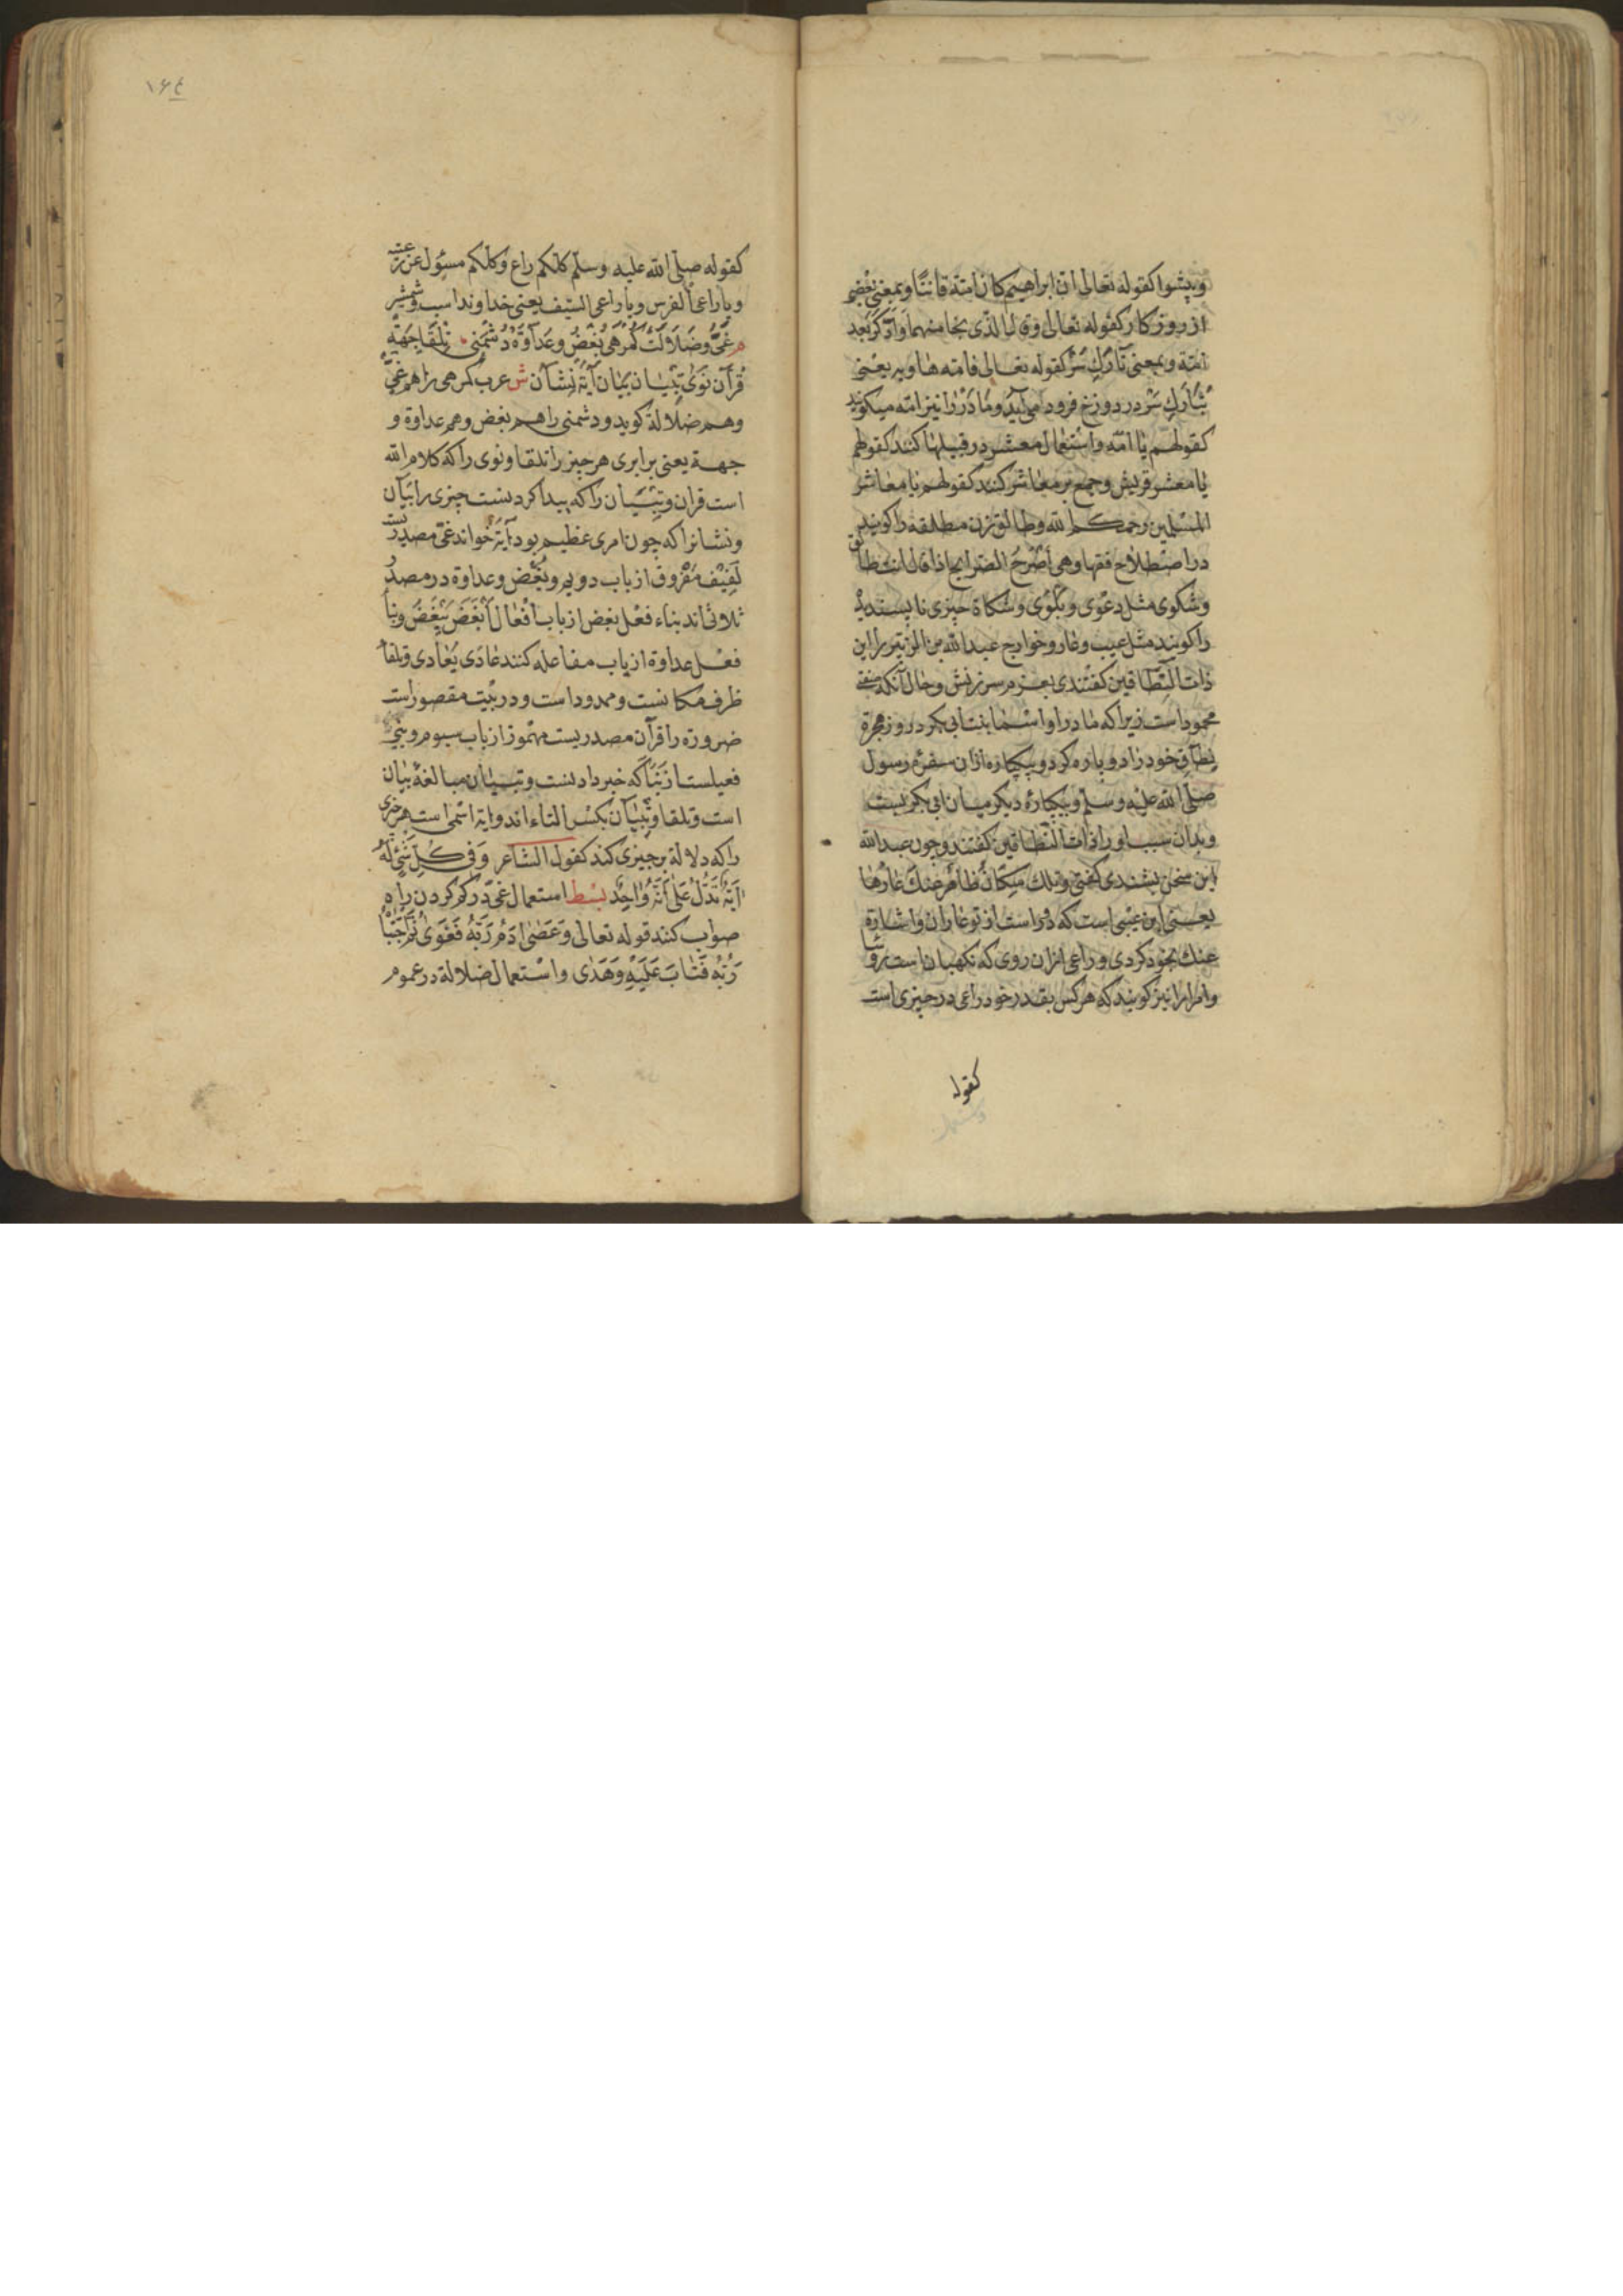 وپیشوا کقوله تعالی ان ابراهیم کان امة قانتا وبمعنی بعضی
از روزکار کقوله تعالی وقال الذی نجا منهما وادکر بعد
امة وبمعنی تارک سر کقوله تعالی فامه هاویه یعنی
بتارک سر در دوزخ فرود می آید ومادر را نیز امه میکویند
کقولهم یا امه واستعمال معشر در قبیلها کنند کقولهم
یا معشر قریش وجمع بر معاشر کنند کقولهم یا معاشر
المسلمین رحمکم الله وطالق زن مطلقه را کویند
در اصطلاح فقها وهی اصرح الصرایح اذا قال انت طالق
وشکوی مثل دعوی وبلوی وشکاة چیزی ناپسندیده
را کویند مثل عیب وعار وخوارج عبدالله بن الزبیر را ابن
ذات النطاقین کفتندی بعزم سرزنش وحال آنکه صفتی
محمود است زیرا که مادر او اسما بنت ابی بکر در روز هجرة
نطاق خود را دو پاره کرد وبیکپاره ازان سفره رسول
صلی الله علیه وسلم وبیکپاره دیکر میان ابی بکر ببست
وبدان سبب او را ذات النطاقین کفتند وچون عبدالله
این سخن بشنیدی کفتی وتلک شکاة ظاهر عنک عارها
یعنی این عیبی است که دور است از تو عار ان واشارة
عنک بخود کردی وراعی ازان روی که نکهبان است رؤسا
وامرا را نیز کویند که هر کس بقدر خود راعی در چیزی است
کقوله
۱۶٤
کقوله صلی الله علیه وسلم کلکم راع وکلکم مسؤل عن رعیته
ویا راعی الفرس ویا راعی السیف یعنی خداوند اسب وشمشیر
م غی وضلالت کمرهی بغض وعداوة دشمنی تلقا جهة
قرآن نوی تبیان بیان آیة نشان ش عرب کمرهی را هم غی
وهم ضلالة کوید ودشمنی را هم بغض وهم عداوة و
جهة یعنی برابری هر چیز را تلقا ونوی را که کلام الله
است قران وتبیان را که پیدا کردنست چیزی را بیان
ونشانرا که چون امری عظیم بود آیة خواند غی مصدریست
لفیف مقروق از باب دویم وبغض وعداوة در مصدر
ثلاثی اند بناء فعل بغض از باب افعال ابغض یبغض وبنا
فعل عداوة از باب مفاعله کنند عادی یعادی وتلقا
ظرف مکانست وممدود است ودر بیت مقصور است
ضرورة را قرآن مصدریست مهموز از باب سیوم ونبی
فعیلست از نبأ که خبر دادنست وتبیان مبالغة بیان
است وتلقا وتبیان بکسر التاء اند وایة اسمی است هر چیزی
را که دلالة بر چیزی کند کقول الشاعر وفی کل شئ له
ایة تدل علی انه واحد بسط استعمال غی در کم کردن راه
صواب کنند قوله تعالی وعصی ادم ربه فغوی ثم اجتباه
ربه فتاب علیه وهدی واستعمال ضلالة در عموم